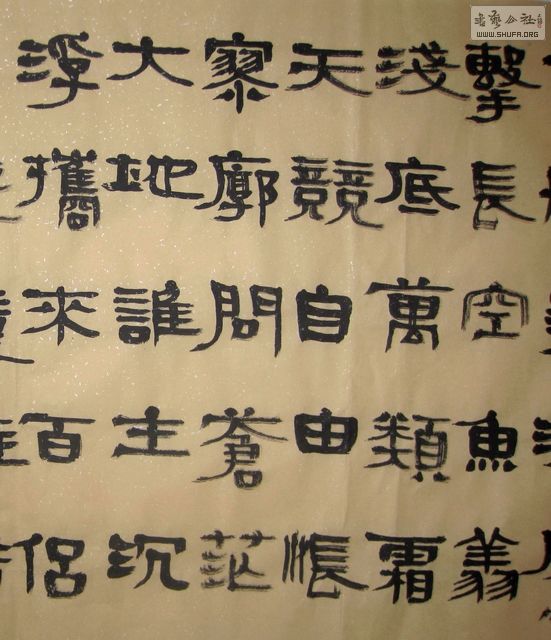 書藝公社
WWW.SHUFA.ORG
擊長空魚翔
淺底萬類霜
天競自由悵
寥廓問蒼茫
大地誰主沉
浮攜來百侶